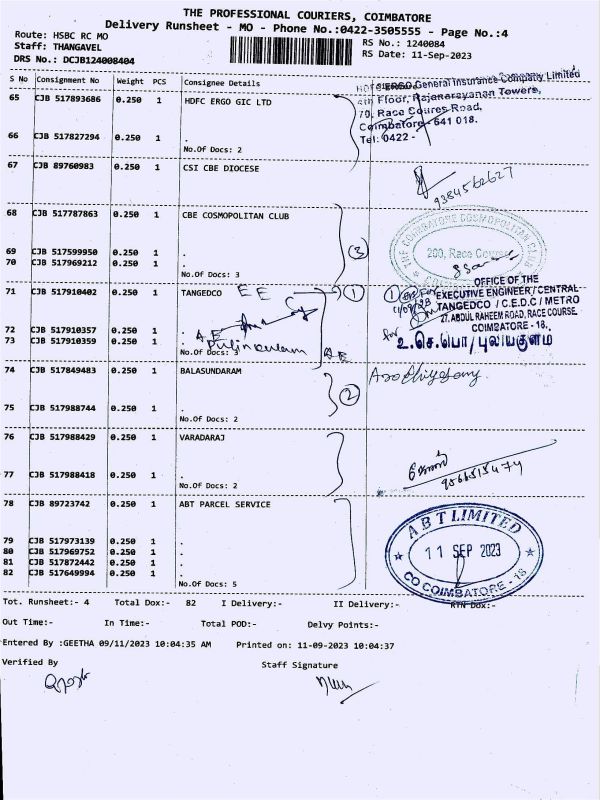 THE PROFESSIONAL COURIERS, COIMBATORE
Delivery Runsheet - MO - Phone No.:0422-3505555 - Page No.:4
Route: HSBC RC MO
RS No.: 1240084
Staff: THANGAVEL
RS Date: 11-Sep-2023
DRS No.: DCJB124008404
S No Consignment No Weight PCS Consignee Details
65 CJB 517893686 0.250 1 HDFC ERGO GIC LTD
ERGO General Insurance Company Limited
4th Floor, Rajanarayanan Towers,
70, Race Coures Road,
Coimbatore - 641 018.
Tel: 0422 -
66 CJB 517827294 0.250 1 .
No.Of Docs: 2
67 CJB 89760983 0.250 1 CSI CBE DIOCESE
9384562627
68 CJB 517787863 0.250 1 CBE COSMOPOLITAN CLUB
THE COIMBATORE COSMOPOLITAN CLUB
200, Race Course
3
69 CJB 517599950 0.250 1 .
70 CJB 517969212 0.250 1 .
No.Of Docs: 3
71 CJB 517910402 0.250 1 TANGEDCO
EE
1
1
OFFICE OF THE
EXECUTIVE ENGINEER / CENTRAL
TANGEDCO / C.E.D.C / METRO
27, ABDUL RAHEEM ROAD, RACE COURSE.
COIMBATORE - 18.
for
உ.செ.பொ / புலியகுளம்
A.E
72 CJB 517910357 0.250 1 .
73 CJB 517910359 0.250 1 .
Pulinkulam
No.Of Docs: 3
A.E
74 CJB 517849483 0.250 1 BALASUNDARAM
2
75 CJB 517988744 0.250 1 .
No.Of Docs: 2
76 CJB 517988429 0.250 1 VARADARAJ
77 CJB 517988418 0.250 1 .
No.Of Docs: 2
78 CJB 89723742 0.250 1 ABT PARCEL SERVICE
ABT LIMITED
11 SEP 2023
CO COIMBATORE - 18
79 CJB 517973139 0.250 1 .
80 CJB 517969752 0.250 1 .
81 CJB 517872442 0.250 1 .
82 CJB 517649994 0.250 1 .
No.Of Docs: 5
Tot. Runsheet:- 4 Total Dox:- 82 I Delivery:- II Delivery:- RTN Dox:-
Out Time:- In Time:- Total POD:- Delvy Points:-
Entered By :GEETHA 09/11/2023 10:04:35 AM Printed on: 11-09-2023 10:04:37
Verified By Staff Signature